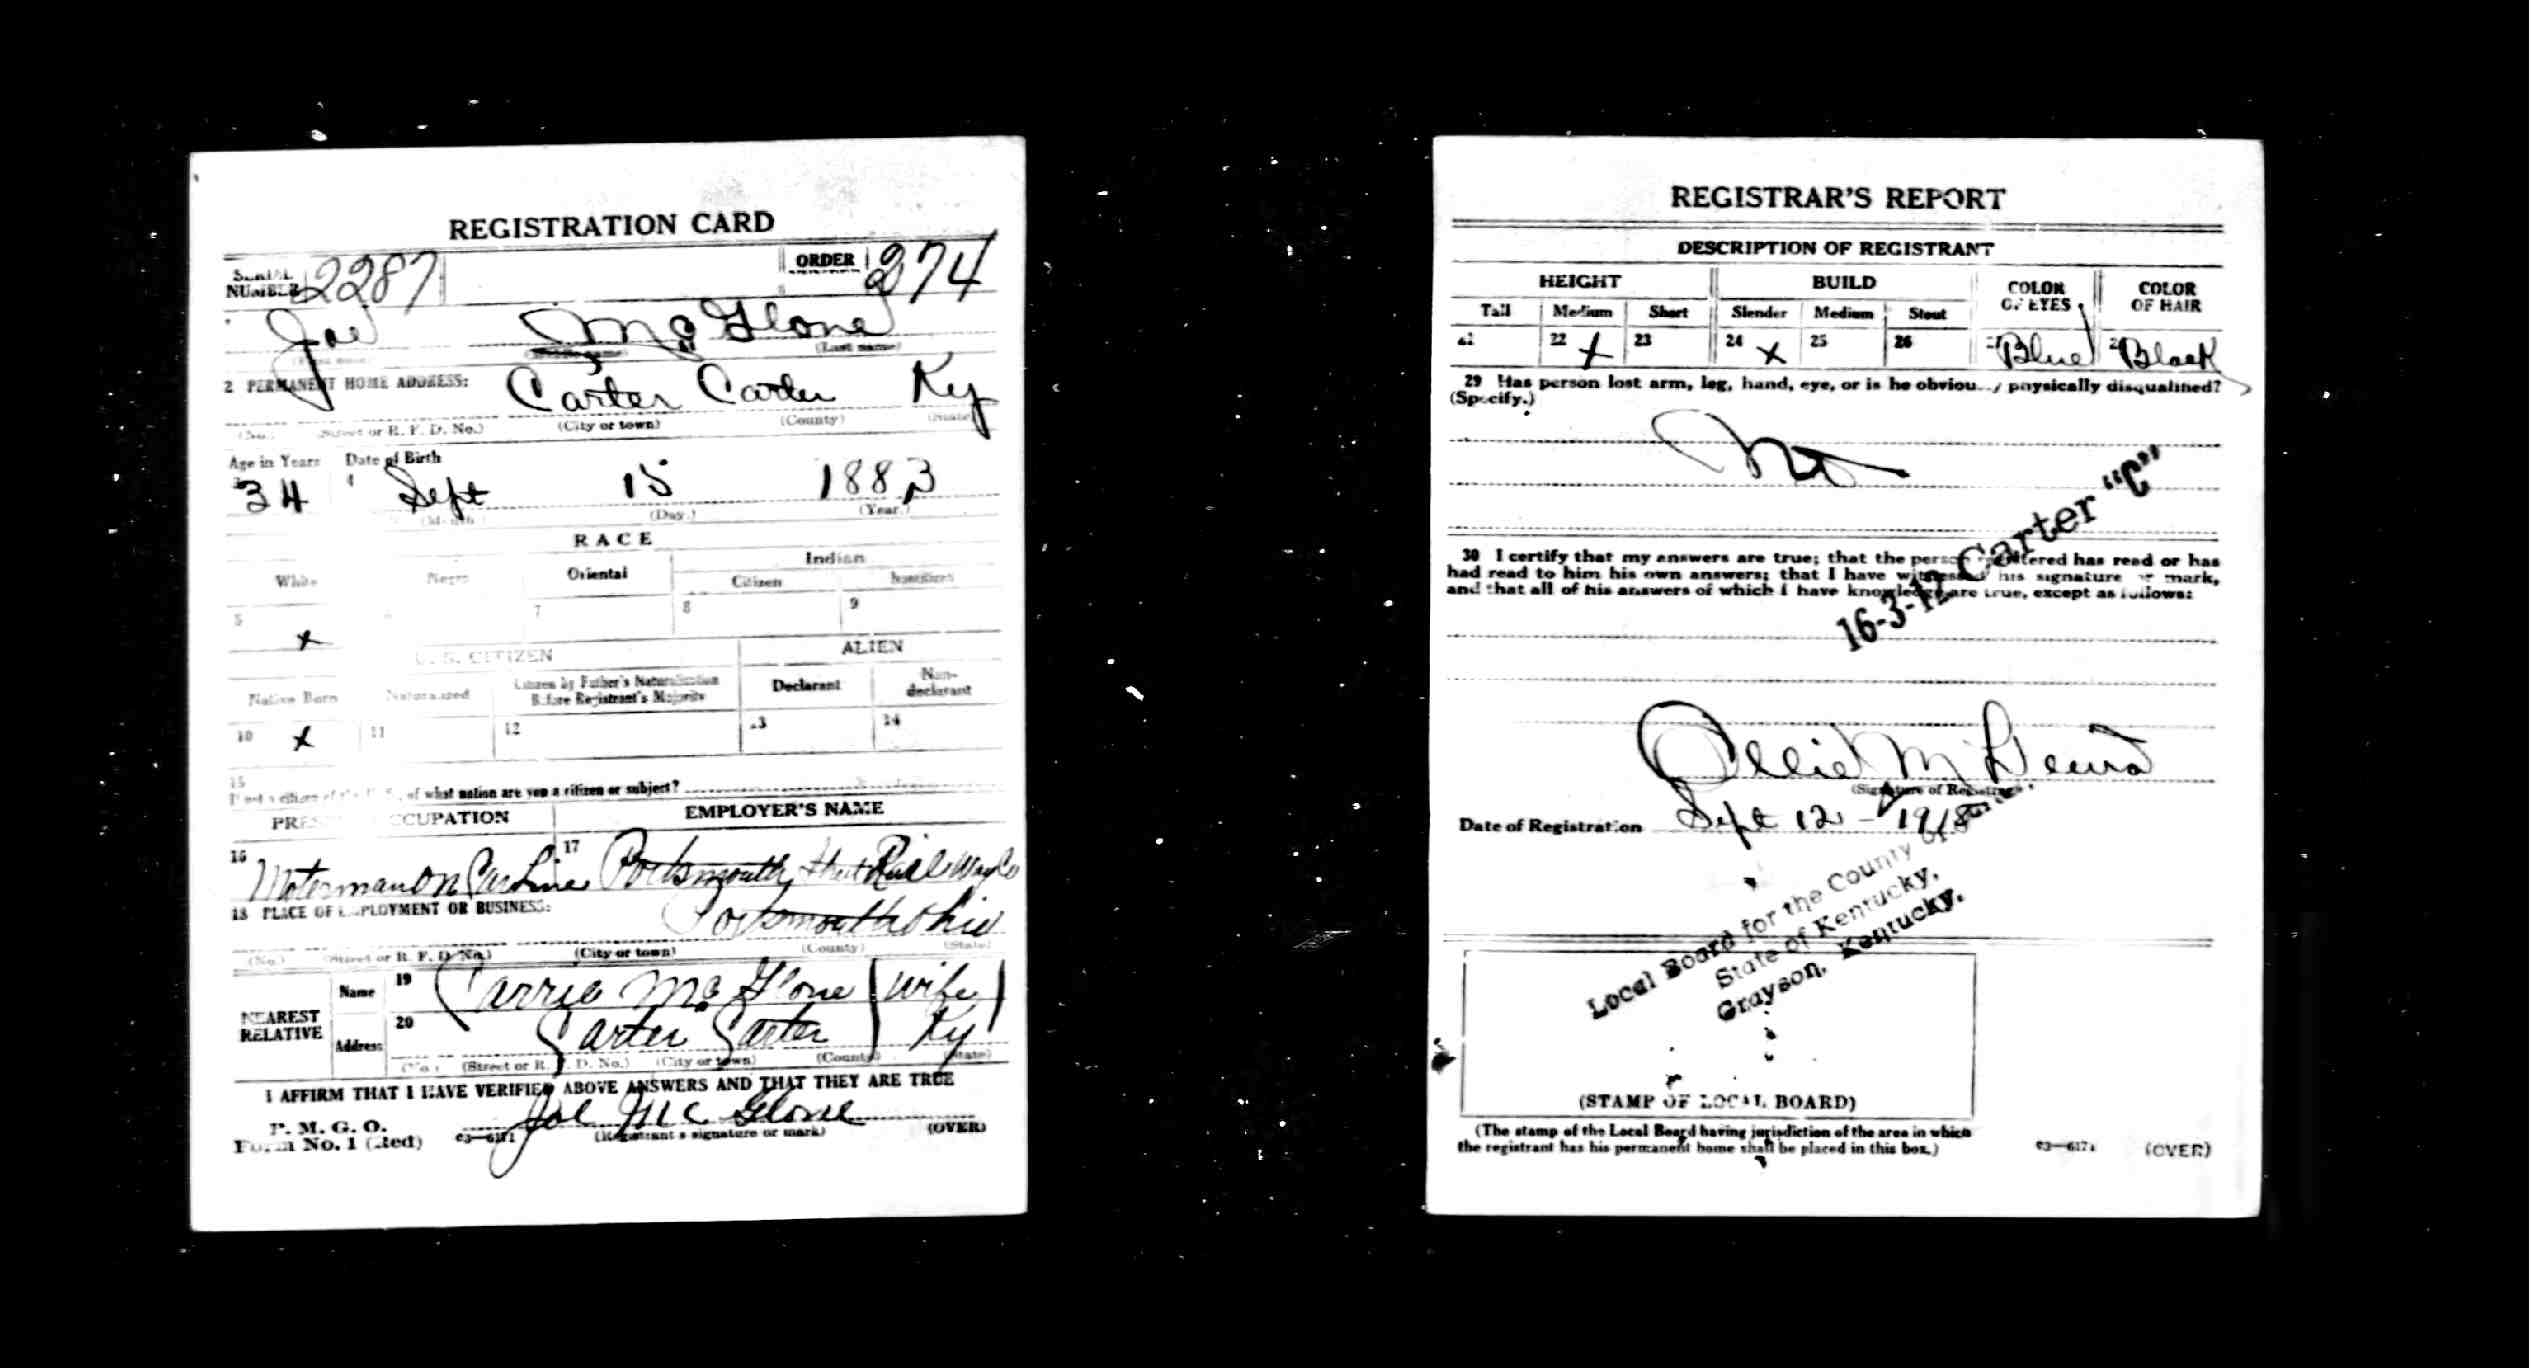 REGISTRATION CARD
SERIAL NUMBER 2287 ORDER 274
Joe Mc Glone
(First name) (Middle name) (Last name)
2 PERMANENT HOME ADDRESS: Carter Carter Ky
(No.) (Street or R. F. D. No.) (City or town) (County) (State)
Age in Years Date of Birth
34 4 Sept 15 1883
(Month.) (Day.) (Year.)
RACE
White Negro Oriental Indian
Citizen Noncitizen
5 x 7 8 9
U. S. CITIZEN ALIEN
Native Born Naturalized Citizen by Father's Naturalization Before Registrant's Majority Declarant Non-declarant
10 x 11 12 13 14
15
If not a citizen of the U. S., of what nation are you a citizen or subject?
PRESENT OCCUPATION EMPLOYER'S NAME
16 Motorman on Car Line 17 Portsmouth Street Rail Way Co
18 PLACE OF EMPLOYMENT OR BUSINESS:
Portsmouth Ohio
(No.) (Street or R. F. D. No.) (City or town) (County) (State)
NEAREST RELATIVE
Name 19 Carrie Mc Glone (Wife)
Address 20 Carter Carter Ky
(No.) (Street or R. F. D. No.) (City or town) (County) (State)
I AFFIRM THAT I HAVE VERIFIED ABOVE ANSWERS AND THAT THEY ARE TRUE
P. M. G. O.
Form No. 1 (Red) 03—6171 Joe Mc Glone
(Registrant's signature or mark) (OVER)
REGISTRAR'S REPORT
DESCRIPTION OF REGISTRANT
HEIGHT BUILD COLOR OF EYES COLOR OF HAIR
Tall Medium Short Slender Medium Stout
21 22 x 23 24 x 25 26 27 Blue 28 Black
29 Has person lost arm, leg, hand, eye, or is he obviously physically disqualified?
(Specify.)
No
30 I certify that my answers are true; that the person registered has read or has
had read to him his own answers; that I have witnessed his signature or mark,
and that all of his answers of which I have knowledge are true, except as follows:
16-3-12 Carter "C"
Ollie M
(Signature of Registrar)
Date of Registration Sept 12 - 1918
Local Board for the County of
State of Kentucky,
Grayson, Kentucky.
(STAMP OF LOCAL BOARD)
(The stamp of the Local Board having jurisdiction of the area in which
the registrant has his permanent home shall be placed in this box.)
03—6171 (OVER)